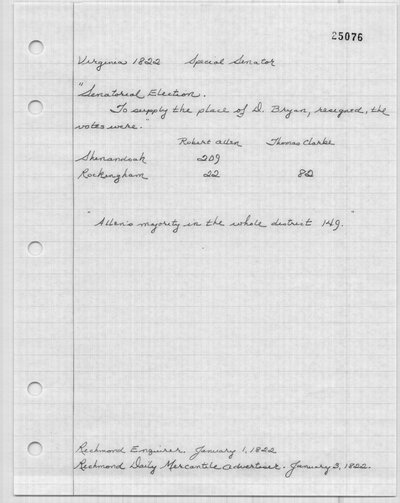 25076
Virginia 1822 Special Senator
"Senatorial Election.
To supply the place of D. Bryan, resigned, the
votes were."
Robert Allen Thomas Clarke
Shenandoah 209
Rockingham 22 82
"Allen's majority in the whole district 149."
Richmond Enquirer. January 1, 1822
Richmond Daily Mercantile Advertiser. January 3, 1822.